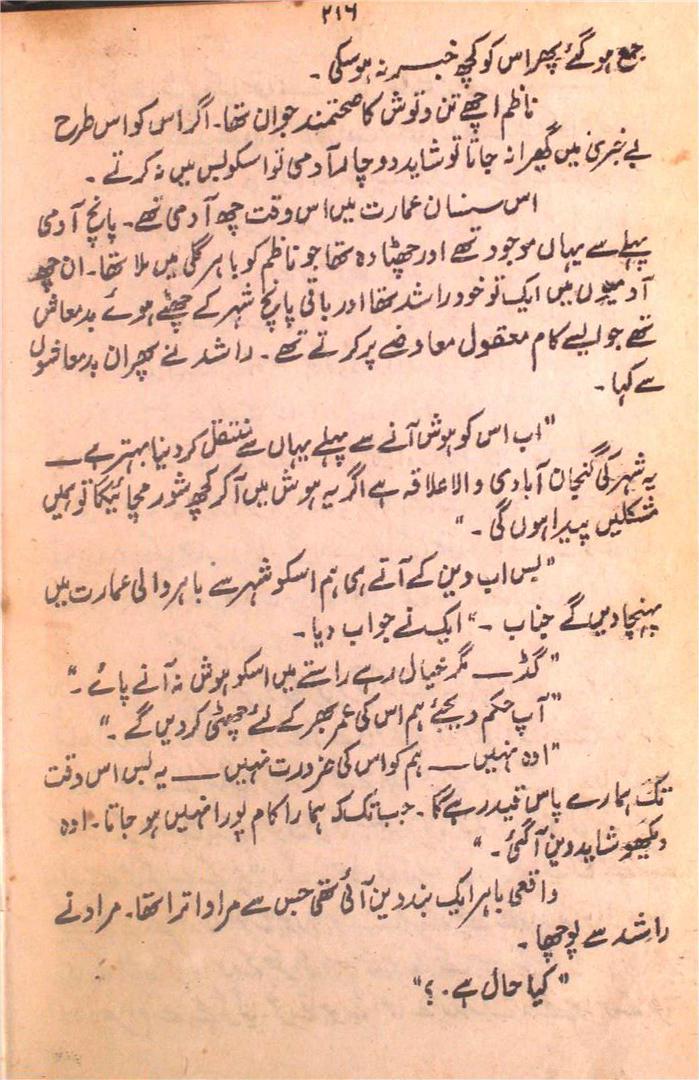 ۲۱۶
جمع ہو گئے پھر اس کو کچھ خبر نہ ہو سکی ۔
ناظم اچھے تن و توش کا صحتمند جوان تھا۔ اگر اس کو اس طرح
بے خبری میں گھیرا نہ جاتا تو شاید دو چار آدمی تو اسکو بس میں نہ کرتے ۔
اس سنسان عمارت میں اس وقت چھ آدمی تھے۔ پانچ آدمی
پہلے سے یہاں موجود تھے اور چھٹا وہ تھا جو ناظم کو باہر گلی میں ملا تھا۔ ان چھ
آدمیوں میں ایک تو خود راشد تھا اور باقی پانچ شہر کے چھٹے ہوئے بدمعاش
تھے جو ایسے کام معقول معاوضے پر کرتے تھے۔ راشد نے پھر ان بدمعاشوں
سے کہا ۔
"اب اس کو ہوش آنے سے پہلے یہاں سے منتقل کر دینا بہتر ہے ــــ
یہ شہر کی گنجان آبادی والا علاقہ ہے اگر یہ ہوش میں آ کر کچھ شور مچائیگا تو ہمیں
مشکلیں پیدا ہوں گی ۔"
"بس اب وین کے آتے ہی ہم اسکو شہر سے باہر والی عمارت میں
پہنچا دیں گے جناب ۔" ایک نے جواب دیا۔
"گڈ ــــ مگر خیال رہے راستے میں اسکو ہوش نہ آنے پائے ۔"
"آپ حکم دیجئے ہم اس کی عمر بھر کے لئے چھٹی کر دیں گے ۔"
"اوہ نہیں ــــ ہم کو اس کی ضرورت نہیں ــــ یہ بس اس وقت
تک ہمارے پاس قید رہے گا۔ جب تک کہ ہمارا کام پورا نہیں ہو جاتا۔ اوہ
دیکھو شاید وین آ گئی ۔"
واقعی باہر ایک بند وین آئی تھی جس سے مراد اترا تھا۔ مراد نے
راشد سے پوچھا ۔
"کیا حال ہے ۔؟"